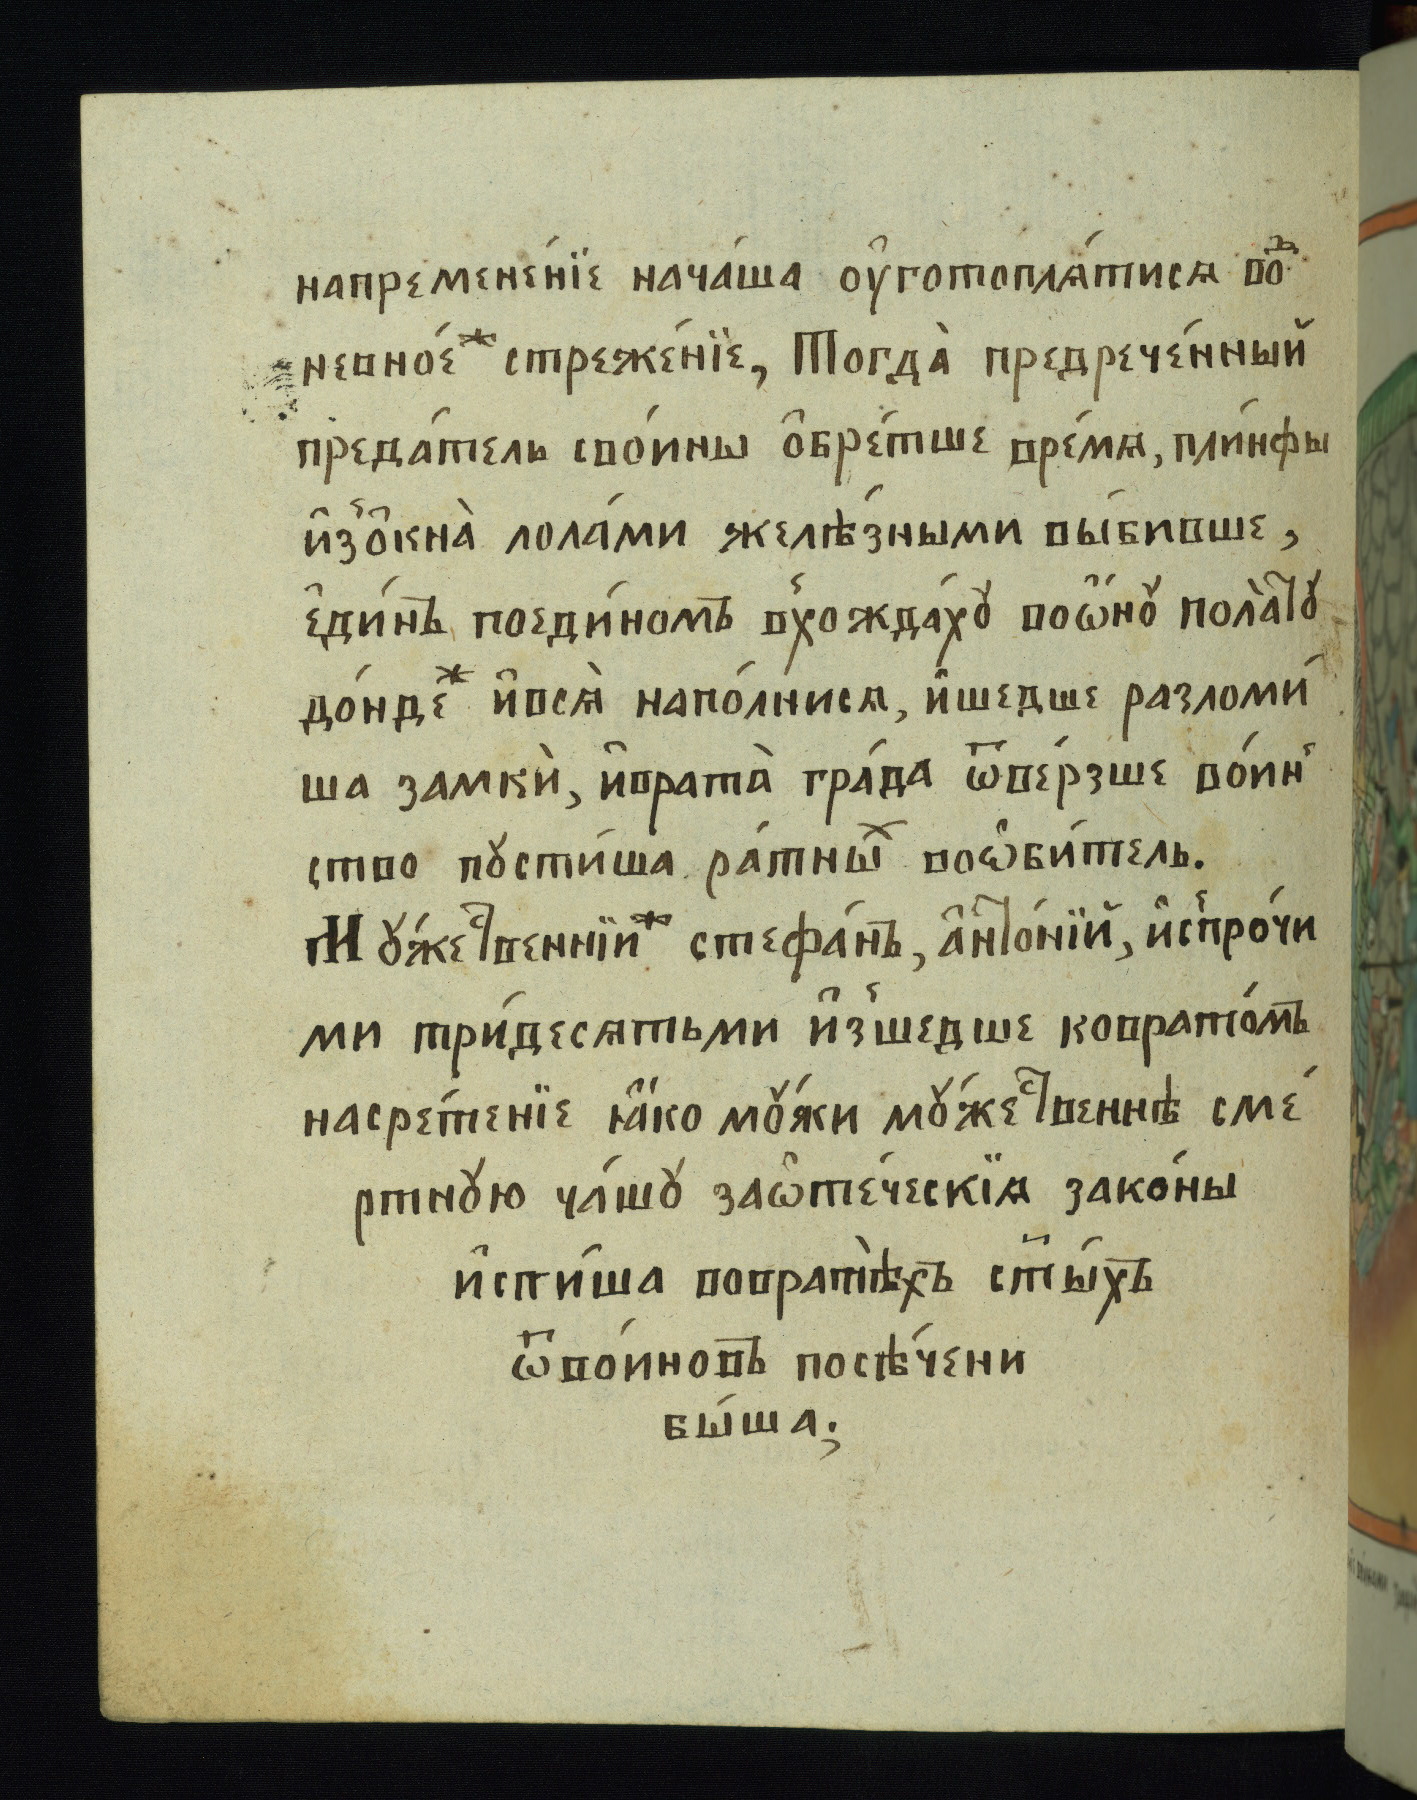 напремене́нїе нача́ша ᲂу҆готовлѧ́тисѧ во̑д̾
невно́еж стреже́нїе, Тогда̀ предрече́нный
преда́тель сво́ины ѻ҆брѣ́тше вре́мѧ, пли́нѳы
и҆зѻ҆кна̀ лола́ми желѣ́зными вы́бивше,
є҆ди́нъ поеди́номъ вхожда́хꙋ воѡ҆́нꙋ пола́тꙋ
до́ндеж и҆всѧ̀ напо́лнисѧ, и҆шедше разломи́
ша замкѝ, и҆врата̀ гра́да ѿве́рзше во́ин
ство пꙋсти́ша ра́тныⷯ воѡ҆би́тель.
Мꙋ́жеⷭ҇твеннїиж стефа́нъ, а҆нто́нїй, и҆спро́чи
ми три́десѧтьми и҆зше́дше ковратѡ́мъ
насрѣ́тенїе ꙗ҆́ко мꙋ́жи мꙋ́жеⷭ҇твеннѣ сме́
ртнꙋю ча́шꙋ заѻ҆те́ческїѧ зако́ны
и҆спи́ша вовратѣ́хъ ст҃ы́хъ
ѿво́иновъ посѣ́чени
бы́ша;